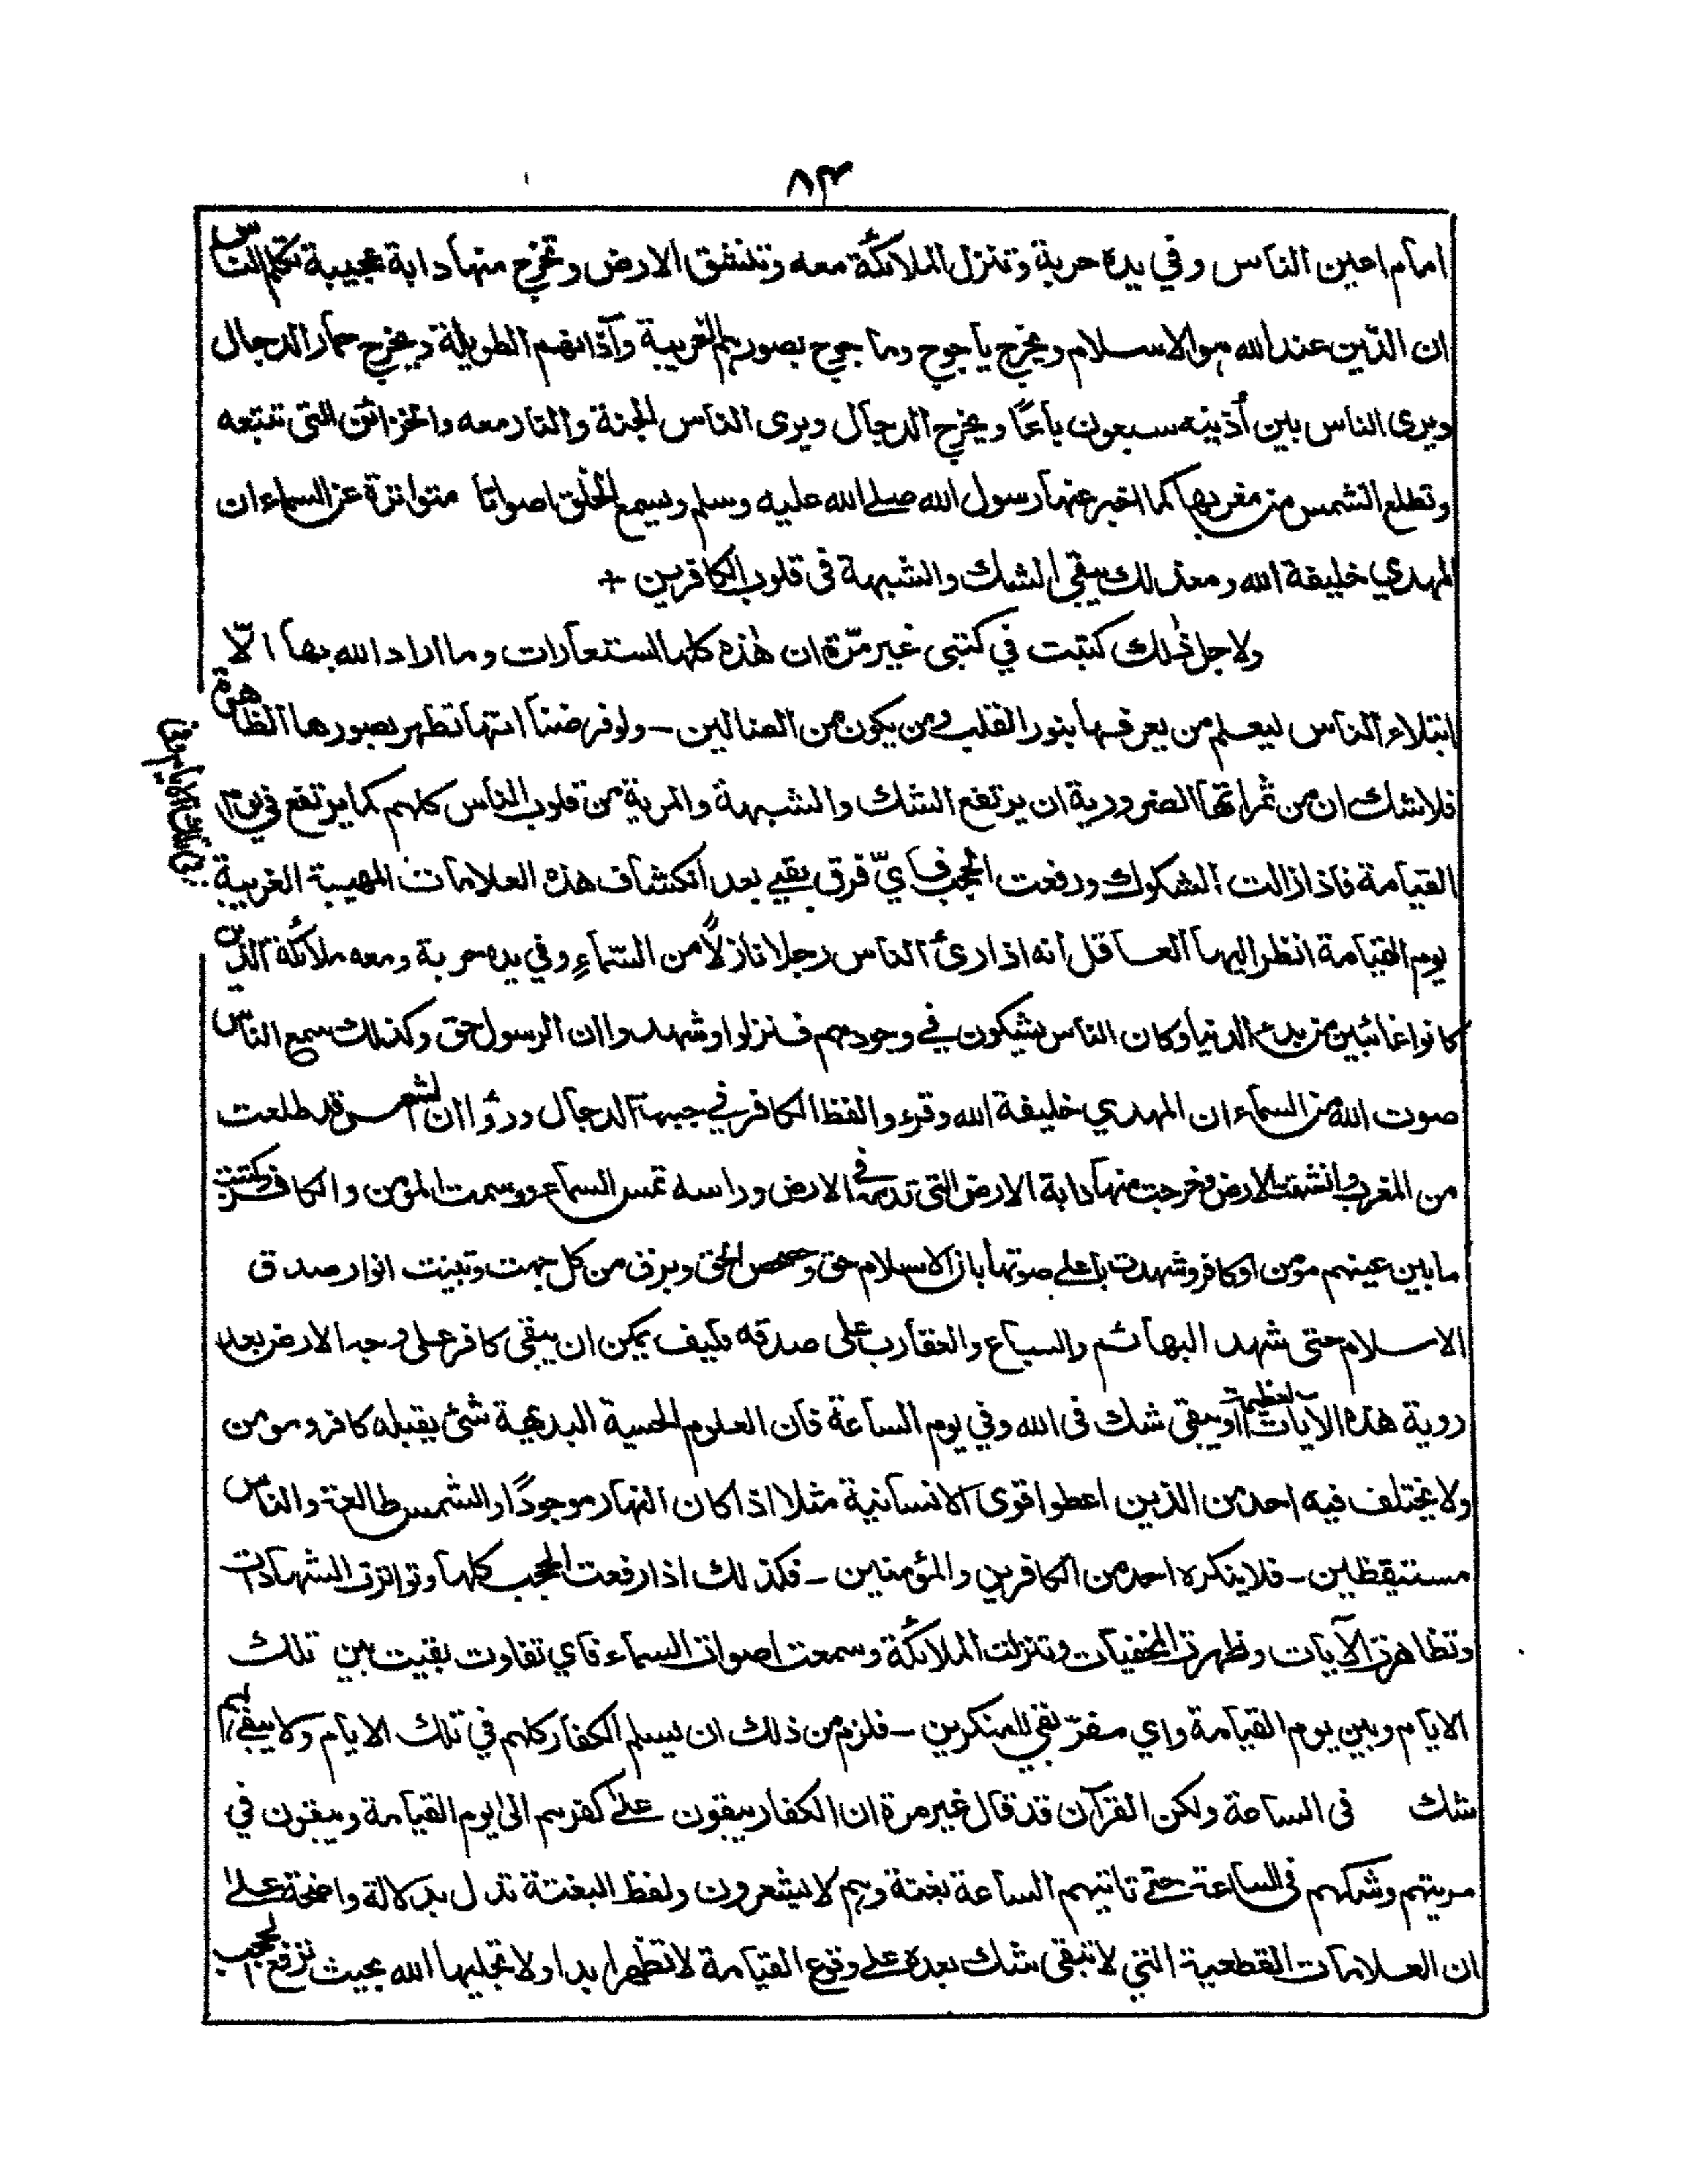 ٨٣
امام اعين الناس وفي يده حربة وتنزل الملائكة معه وتنشق الارض وتخرج منها دابة عجيبة تكلم الناس
ان الدّين عند الله هو الاسلام ويخرج ياجوج وماجوج بصورهم الغريبة وآذانهم الطويلة ويخرج حمار الدجال
ويرى الناس بين أذنيه سبعون باعًا ويخرج الدجال ويرى الناس الجنة والنار معه والخزائن التى تتبعه
وتطلع الشمس من مغربها كما اخبر عنها رسول الله صلے الله عليه وسلم ويسمع الخلق اصواتا متواترة عن السماء ان
المهدي خليفة الله ومع ذلك يبقى الشك والشبهة فى قلوب الكافرين +
ولاجل ذٰلك كتبت في كتبى غير مرّة ان هٰذه كلها استعارات وما اراد الله بها الّا
ابتلاء الناس ليعلم من يعرفها بنور القلب ومن يكون من الضالين - ولو فرضنا انّها تظهر بصورها الظاهرة
فلا شك ان من ثمراتها الضرورية ان يرتفع الشك والشبهة والمرية من قلوب الناس كلهم كما يرتفع في يوم
القيامة فاذا زالت الشكوك ورفعت الحجب فايّ فرق بقي بعد انكشاف هذه العلامات المهيبة الغريبة
بين تلك الايام وبين
يوم القيامة انظر ايها العاقل انه اذا رئ الناس رجلا نازلًا من السّماءِ وفي يده حربة ومعه ملائكة الذين
كانوا غائبين من بدء الدنيا وكان الناس يشكون في وجودهم فنزلوا وشهدوا ان الرسول حق وكذلك سمع الناس
صوت الله من السماء ان المهدي خليفة الله وقرء والفظ الكافر في جبهة الدجال ورؤا ان الشمس قد طلعت
من المغرب وانشقت الارض وخرجت منها دابة الارض التى قدمه في الارض وراسه تمس السماء ووسمت المؤمن والكافر وكتبت
ما بين عينهم مؤمن او كافر وشهدت باعلى صوتها بان الاسلام حق وحصحص الحق وبرق من كل جهت وتبينت انوار صدق
الاسلام حتى شهد البهائم والسباع والعقارب على صدقه فكيف يمكن ان يبقى كافر على وجه الارض بعد
روية هذه الآيات العظيمة او يبقى شك فى الله وفي يوم الساعة فان العلوم الحسية البديهة شئ يقبله كافر ومومن
ولا يختلف فيه احد من الذين اعطوا قوى الانسانية مثلا اذا كان النهار موجودًا والشمس طالعة والناس
مستيقظين - فلا ينكره احد من الكافرين والمؤمنين - فكذلك اذا رفعت الحجب كلها وتواترت الشهادات
وتظاهرت الآيات وظهرت المخفيات وتنزلت الملائكة وسمعت اصوات السماء فاي تفاوت بقيت بين تلك
الايام وبين يوم القيامة واي مفرّ بقي للمنكرين - فلزم من ذلك ان يسلم الكفار كلهم في تلك الايام ولا يبقى لهم
شك فى الساعة ولكن القرآن قد قال غير مرة ان الكفار يبقون علے كفرهم الى يوم القيامة ويبقون في
مريتهم وشكهم فى الساعة حتى تاتيهم الساعة بغتة وهم لا يشعرون ولفظ البغتة تدل بدلالة واضحة علے
ان العلامات القطعية التي لا تبقى شك بعده على وقوع القيامة لا تظهر ابدا ولا تجليها الله بحيث ترفع الحجب